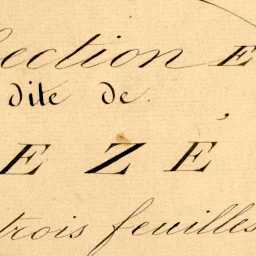 Section E
dite de
E Z É
trois feuilles